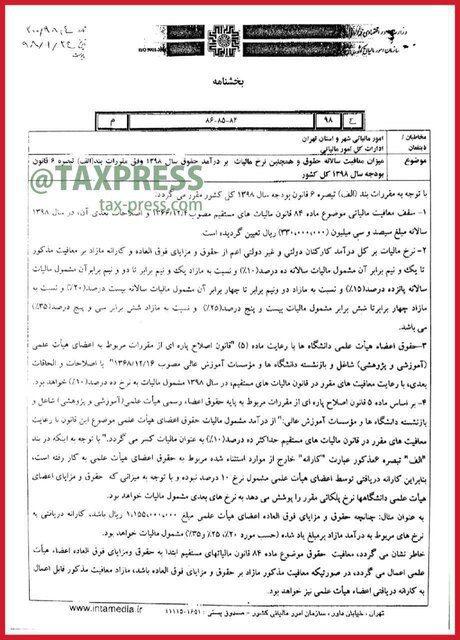 ۲۰۰/۹۸/۴
۹۸/۱/۲۴
وزارت امور اقتصادی و دارایی
سازمان امور مالیاتی کشور
بخشنامه
م
۸۶-۸۵-۸۲
۹۸
ع
مخاطبان / ذینفعان
امور مالیاتی شهر و استان تهران
ادارات کل امور مالیاتی
موضوع
میزان معافیت سالانه حقوق و همچنین نرخ مالیات بر درآمد حقوق سال ۱۳۹۸ وفق مقررات بند(الف) تبصره ۶ قانون
بودجه سال ۱۳۹۸ کل کشور
@TAXPRESS
tax-press.com
با توجه به مقررات بند (الف) تبصره ۶ قانون بودجه سال ۱۳۹۸ کل کشور مقرر می گردد:
۱- سقف معافیت مالیاتی موضوع ماده ۸۴ قانون مالیات های مستقیم مصوب ۱۳۶۶/۱۲/۳ و اصلاحات بعدی آن، در سال ۱۳۹۸
سالانه مبلغ سیصد و سی میلیون (۳۳۰،۰۰۰،۰۰۰) ریال تعیین گردیده است.
۲- نرخ مالیات بر کل درآمد کارکنان دولتی و غیر دولتی اعم از حقوق و مزایای فوق العاده و کارانه مازاد بر معافیت مذکور
تا یک و نیم برابر آن مشمول مالیات سالانه ده درصد(۱۰٪) و نسبت به مازاد یک و نیم برابر تا دو و نیم برابر آن مشمول مالیات
سالانه پانزده درصد(۱۵٪) و نسبت به مازاد دو ونیم برابر تا چهار برابر آن مشمول مالیات سالانه بیست درصد(۲۰٪) و نسبت به
مازاد چهار برابر تا شش برابر مشمول مالیات بیست و پنج درصد(۲۵٪) و نسبت به مازاد شش برابر سی و پنج درصد(۳۵٪)
می باشد.
۳-حقوق اعضاء هیأت علمی دانشگاه ها با رعایت ماده (۵) "قانون اصلاح پاره ای از مقررات مربوط به اعضای هیأت علمی
(آموزشی و پژوهشی) شاغل و بازنشسته دانشگاه ها و مؤسسات آموزش عالی مصوب ۱۳۶۸/۱۲/۱۶" با اصلاحات و الحاقات
بعدی، با رعایت معافیت های مقرر در قانون مالیات های مستقیم، در سال ۱۳۹۸ مشمول مالیات به نرخ ده درصد(۱۰٪) خواهد بود.
۴- بر اساس ماده ۵ قانون اصلاح پاره ای از مقررات مربوط به پایه حقوق اعضاء رسمی هیأت علمی(آموزشی و پژوهشی) شاغل و
بازنشسته دانشگاه ها و مؤسسات آموزش عالی:" از درآمد مشمول مالیات حقوق اعضای هیأت علمی موضوع این قانون با رعایت
معافیت های مقرر در قانون مالیات های مستقیم حداکثر ده درصد(۱۰٪) به عنوان مالیات کسر می گردد." با توجه به اینکه در بند
"الف" تبصره ۶مذکور عبارت "کارانه" خارج از موارد استثناء شده مربوط به حقوق اعضای هیأت علمی به کار رفته است،
بنابراین کارانه دریافتی توسط اعضای هیأت علمی مشمول نرخ ۱۰ درصد نبوده و با توجه به میزانی که حقوق و مزایای اعضای
هیأت علمی دانشگاهها نرخ پلکانی مقرر را پوشش می دهد به نرخ های بعدی مشمول مالیات خواهد بود.
به عنوان مثال: چنانچه حقوق و مزایای فوق العاده اعضای هیأت علمی مبلغ ۱،۱۵۵،۰۰۰،۰۰۰ ریال باشد، کارانه دریافتی به
نرخ های مربوط به درآمد مازاد بر مبلغ یاد شده (حسب مورد ۲۰٪، ۲۵٪ و ۳۵٪) مشمول مالیات خواهد بود.
خاطر نشان می گردد، معافیت حقوق موضوع ماده ۸۴ قانون مالیاتهای مستقیم ابتدا به حقوق و مزایای فوق العاده اعضای هیأت
علمی اعمال می گردد، در صورتیکه معافیت مذکور مازاد بر حقوق و مزایای فوق العاده باشد، مازاد معافیت مذکور قابل اعمال
به کارانه دریافتی اعضای هیأت علمی نیز خواهد بود.
www.intamedia.ir
تهران، خیابان داور، سازمان امور مالیاتی کشور - صندوق پستی: ۱۶۵۱-۱۱۱۱۵